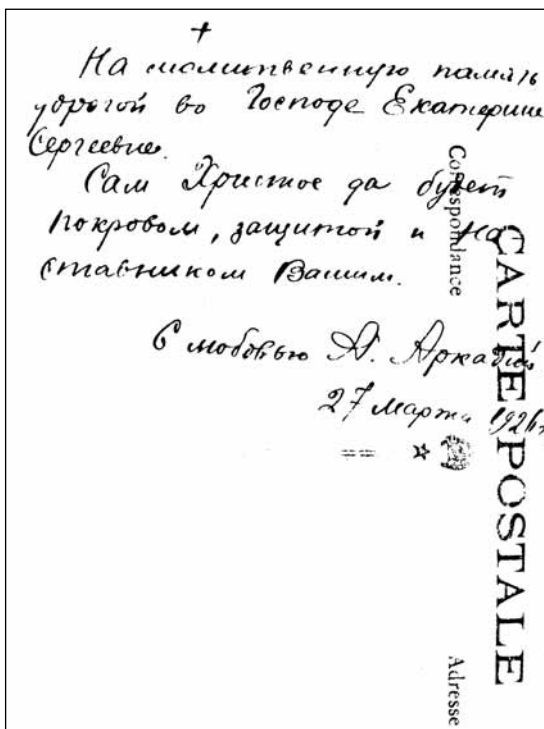 На молитвенную память
дорогой во Господе Екатерине
Сергеевне.
Сам Христос да будет
покровом, защитой и на
ставником Вашим.
С любовью А. Аркадий
27 марта 1926 г.
Correspondance
CARTE POSTALE
Adresse